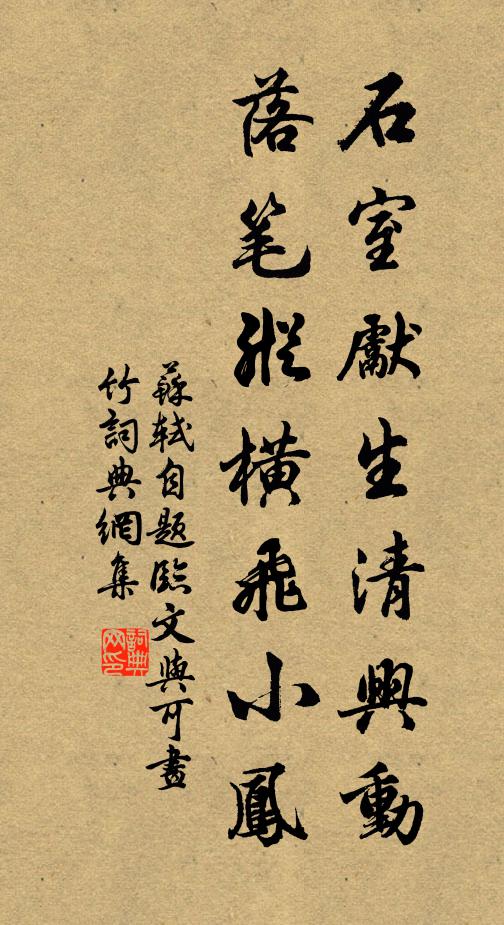 石室獻生清興動
落笔縱橫飛小鳳
蘇軾自題臨文與可畫
竹詞典網集
詞典网印